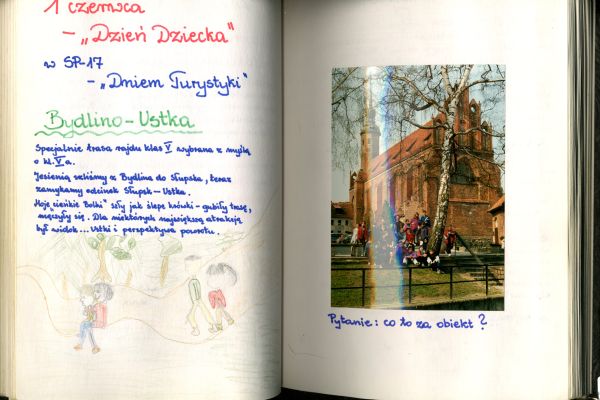 1 czerwca
- „Dzień Dziecka"
w SP-17
- „Dniem Turystyki"
Bydlino - Ustka
Specjalnie trasa rajdu klas V wybrana z myślą
o kl. Va.
Jesienią szliśmy z Bydlina do Słupska, teraz
zamykamy odcinek Słupsk - Ustka.
Moje „ciotkie Bolki" szły jak ślepe krówki - gubiły trasę,
męczyły się. Dla niektórych największą atrakcją
był widok... Ustki i perspektywa powrotu.
Pytanie: co to za obiekt?